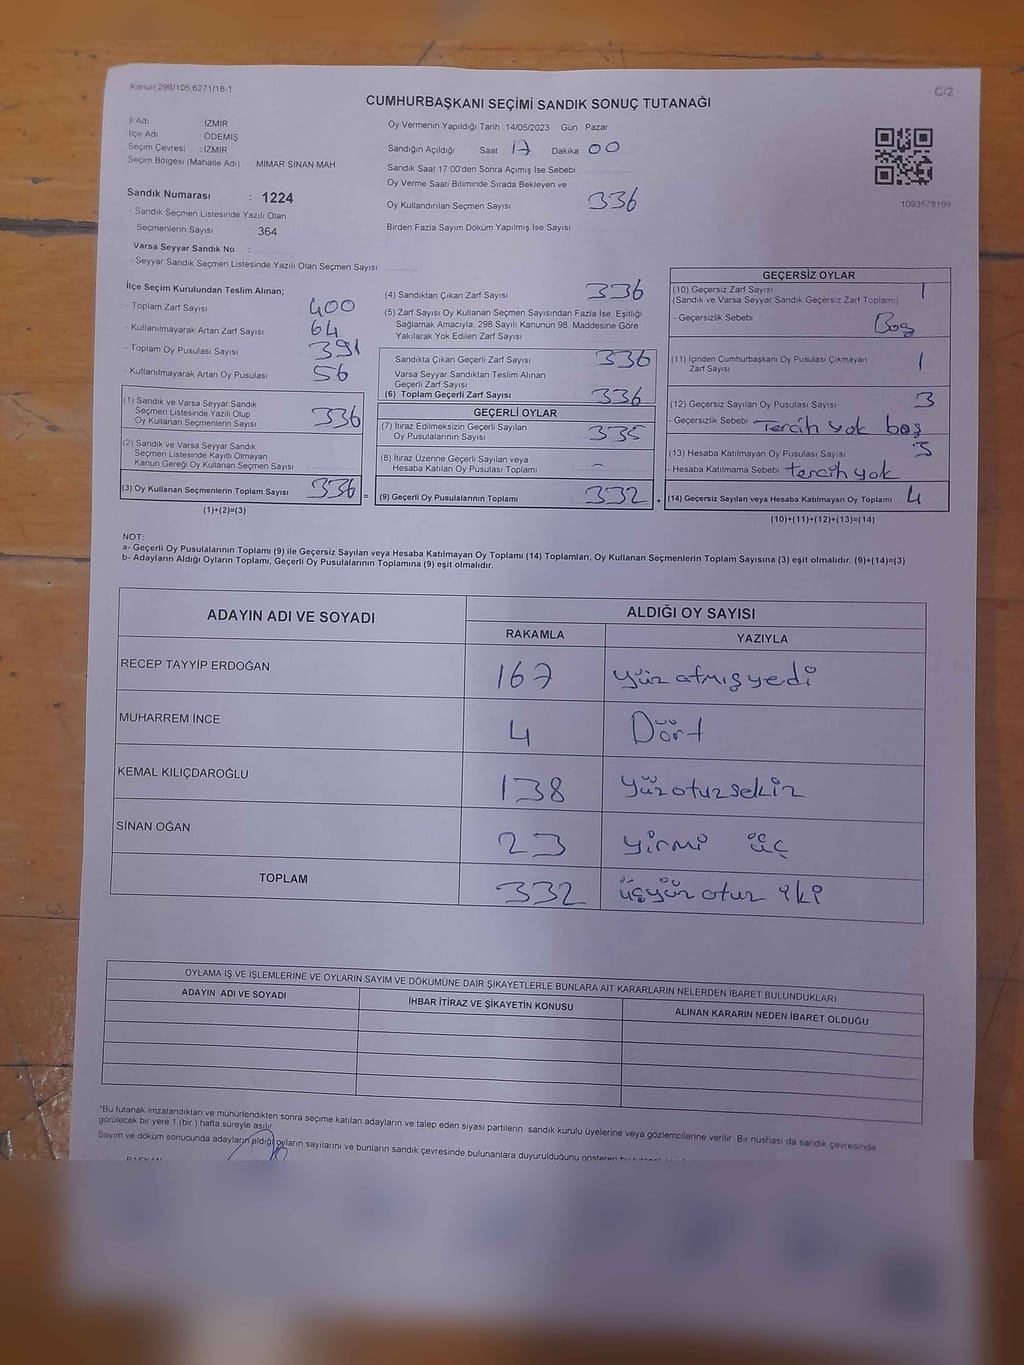 Kanun 298/105,6271/18-1
C/2
CUMHURBAŞKANI SEÇİMİ SANDIK SONUÇ TUTANAĞI
İl Adı İZMİR
İlçe Adı ÖDEMİŞ
Seçim Çevresi : İZMİR
Seçim Bölgesi (Mahalle Adı) MİMAR SİNAN MAH
Sandık Numarası : 1224
- Sandık Seçmen Listesinde Yazılı Olan
Seçmenlerin Sayısı : 364
Varsa Seyyar Sandık No :
- Seyyar Sandık Seçmen Listesinde Yazılı Olan Seçmen Sayısı:
Oy Vermenin Yapıldığı Tarih 14/05/2023 Gün Pazar
Sandığın Açıldığı Saat 17 Dakika 00
Sandık Saat 17:00'den Sonra Açımış İse Sebebi
Oy Verme Saati Bitiminde Sırada Bekleyen ve
Oy Kullandırılan Seçmen Sayısı 336
Birden Fazla Sayım Döküm Yapılmış İse Sayısı
1093578199
İlçe Seçim Kurulundan Teslim Alınan;
- Toplam Zarf Sayısı 400
- Kullanılmayarak Artan Zarf Sayısı 64
- Toplam Oy Pusulası Sayısı 391
- Kullanılmayarak Artan Oy Pusulası 56
(1) Sandık ve Varsa Seyyar Sandık
Seçmen Listesinde Yazılı Olup
Oy Kullanan Seçmenlerin Sayısı 336
(2) Sandık ve Varsa Seyyar Sandık
Seçmen Listesinde Kayıtlı Olmayan
Kanun Gereği Oy Kullanan Seçmen Sayısı
(3) Oy Kullanan Seçmenlerin Toplam Sayısı 336 =
(1)+(2)=(3)
(4) Sandıktan Çıkan Zarf Sayısı 336
(5) Zarf Sayısı Oy Kullanan Seçmen Sayısından Fazla İse, Eşitliği
Sağlamak Amacıyla, 298 Sayılı Kanunun 98. Maddesine Göre
Yakılarak Yok Edilen Zarf Sayısı
Sandıkta Çıkan Geçerli Zarf Sayısı 336
Varsa Seyyar Sandıktan Teslim Alınan
Geçerli Zarf Sayısı
(6) Toplam Geçerli Zarf Sayısı 336
GEÇERLİ OYLAR
(7) İtiraz Edilmeksizin Geçerli Sayılan
Oy Pusulalarının Sayısı 335
(8) İtiraz Üzerine Geçerli Sayılan veya
Hesaba Katılan Oy Pusulası Toplamı -
(9) Geçerli Oy Pusulalarının Toplamı 332 +
GEÇERSİZ OYLAR
(10) Geçersiz Zarf Sayısı 1
(Sandık ve Varsa Seyyar Sandık Geçersiz Zarf Toplamı)
- Geçersizlik Sebebi Boş
(11) İçinden Cumhurbaşkanı Oy Pusulası Çıkmayan
Zarf Sayısı 1
(12) Geçersiz Sayılan Oy Pusulası Sayısı 3
- Geçersizlik Sebebi Tercih yok boş
(13) Hesaba Katılmayan Oy Pusulası Sayısı 3
- Hesaba Katılmama Sebebi tercih yok
(14) Geçersiz Sayılan veya Hesaba Katılmayan Oy Toplamı 4
(10)+(11)+(12)+(13)=(14)
NOT:
a- Geçerli Oy Pusulalarının Toplamı (9) ile Geçersiz Sayılan veya Hesaba Katılmayan Oy Toplamı (14) Toplamları, Oy Kullanan Seçmenlerin Toplam Sayısına (3) eşit olmalıdır. (9)+(14)=(3)
b- Adayların Aldığı Oyların Toplamı, Geçerli Oy Pusulalarının Toplamına (9) eşit olmalıdır.
ADAYIN ADI VE SOYADI
ALDIĞI OY SAYISI
RAKAMLA YAZIYLA
RECEP TAYYİP ERDOĞAN 167 yüz atmış yedi
MUHARREM İNCE 4 Dört
KEMAL KILIÇDAROĞLU 138 yüzotuzsekiz
SİNAN OĞAN 23 yirmi üç
TOPLAM 332 üçyüz otuz iki
OYLAMA İŞ VE İŞLEMLERİNE VE OYLARIN SAYIM VE DÖKÜMÜNE DAİR ŞİKAYETLERLE BUNLARA AİT KARARLARIN NELERDEN İBARET BULUNDUKLARI
ADAYIN ADI VE SOYADI İHBAR İTİRAZ VE ŞİKAYETİN KONUSU ALINAN KARARIN NEDEN İBARET OLDUĞU
*Bu tutanak imzalandıktan ve mühürlendikten sonra seçime katılan adayların ve talep eden siyasi partilerin sandık kurulu üyelerine veya gözlemcilerine verilir. Bir nüshası da sandık çevresinde
görülecek bir yere 1 (bir) hafta süreyle asılır.
Sayım ve döküm sonucunda adayların aldığı oyların sayılarını ve bunların sandık çevresinde bulunanlara duyurulduğunu gösteren bu
BAŞKAN